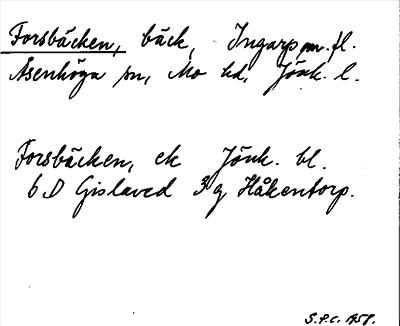 Forsbäcken, bäck, Ingarp m. fl.
Åsenhöga sn, Mo hd, Jönk. l.
Forsbäcken, ek Jönk. bl.
6 D Gislaved 3 g Håkentorp.
S.P.C. 1958.